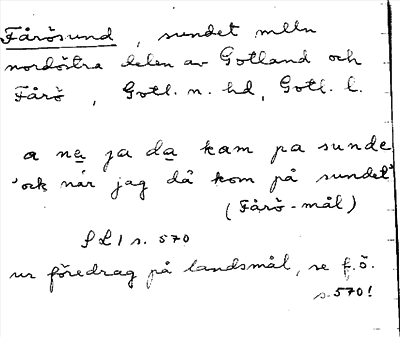 Fårösund, sundet mlln
nordöstra delen av Gotland och
Fårö, Gotl. n. hd, Gotl. l.
a na ja da kam pa sunde
'och när jag då kom på sundet'
(Fårö-mål)
SL1 s. 570
ur föredrag på landsmål, se f.ö.
s. 570!